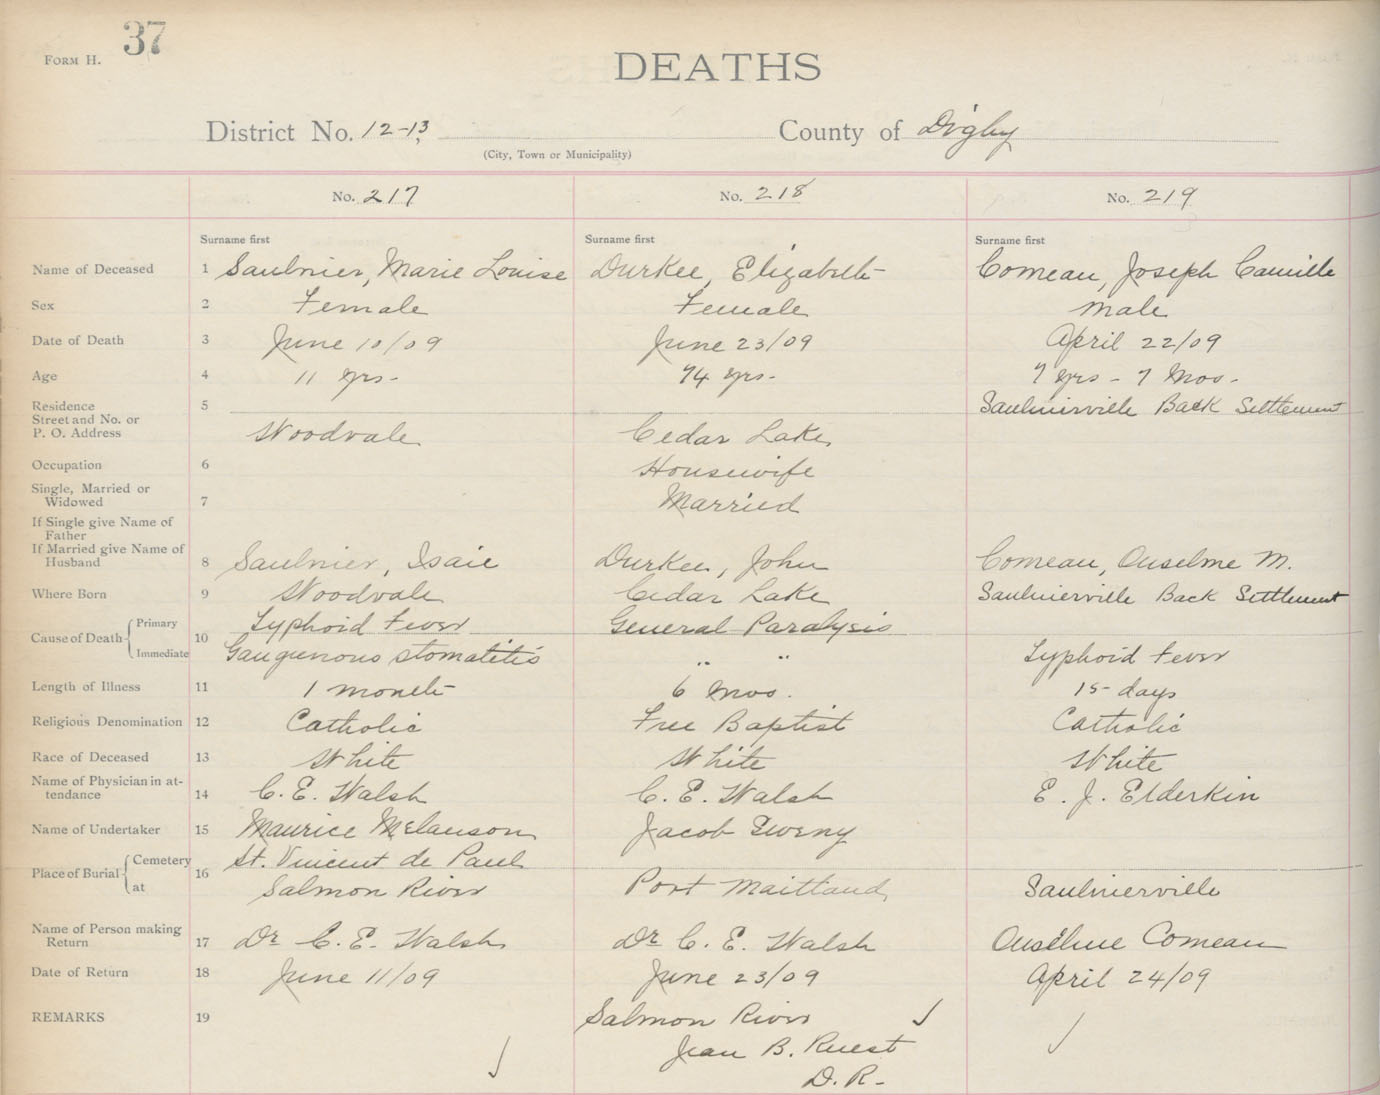 FORM H. 37
DEATHS
District No. 12-13 County of Digby
(City, Town or Municipality)
No. 217 No. 218 No. 219
Surname first Surname first Surname first
Name of Deceased 1 Saulnier, Marie Louise Durkee, Elizabeth Comeau, Joseph Camille
Sex 2 Female Female Male
Date of Death 3 June 10/09 June 23/09 April 22/09
Age 4 11 yrs- 74 yrs- 7 yrs - 7 Mos-
Residence 5 Saulnierville Back Settlement
Street and No. or
P. O. Address Woodvale Cedar Lake
Occupation 6 Housewife
Single, Married or
Widowed 7 Married
If Single give Name of
Father
If Married give Name of
Husband 8 Saulnier, Isaie Durkee, John Comeau, Anselme M.
Where Born 9 Woodvale Cedar Lake Saulnierville Back Settlement
Primary Typhoid Fever General Paralysis
Cause of Death 10
Immediate Gangrenous stomatitis " " Typhoid Fever
Length of Illness 11 1 month 6 Mos. 15 days
Religious Denomination 12 Catholic Free Baptist Catholic
Race of Deceased 13 White White White
Name of Physician in at-
tendance 14 C. E. Walsh C. E. Walsh E. J. Elderkin
Name of Undertaker 15 Maurice Melanson Jacob
Cemetery St. Vincent de Paul
Place of Burial 16
at Salmon River Port Maitland Saulnierville
Name of Person making
Return 17 Dr C. E. Walsh Dr C. E. Walsh Anselme Comeau
Date of Return 18 June 11/09 June 23/09 April 24/09
REMARKS 19 Salmon River
Jean B. Ruest
D. R-